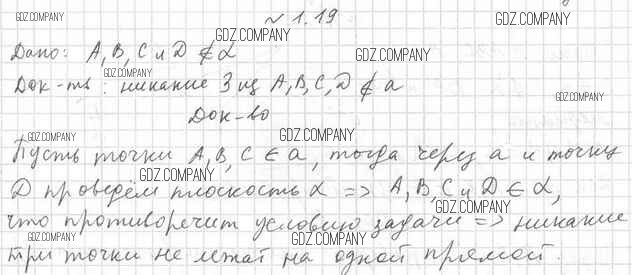 № 1.19
Дано: A, B, C и D ∉ α
Док-ть: никакие 3 из A, B, C, D ∉ a
Док-во
Пусть точки A, B, C ∈ a, тогда через a и точку
D проведём плоскость α => A, B, C и D ∈ α,
что противоречит условию задачи => никакие
три точки не лежат на одной прямой.
GDZ.COMPANY
GDZ.COMPANY
GDZ.COMPANY
GDZ.COMPANY
GDZ.COMPANY
GDZ.COMPANY
GDZ.COMPANY
GDZ.COMPANY
GDZ.COMPANY
GDZ.COMPANY
GDZ.COMPANY
GDZ.COMPANY